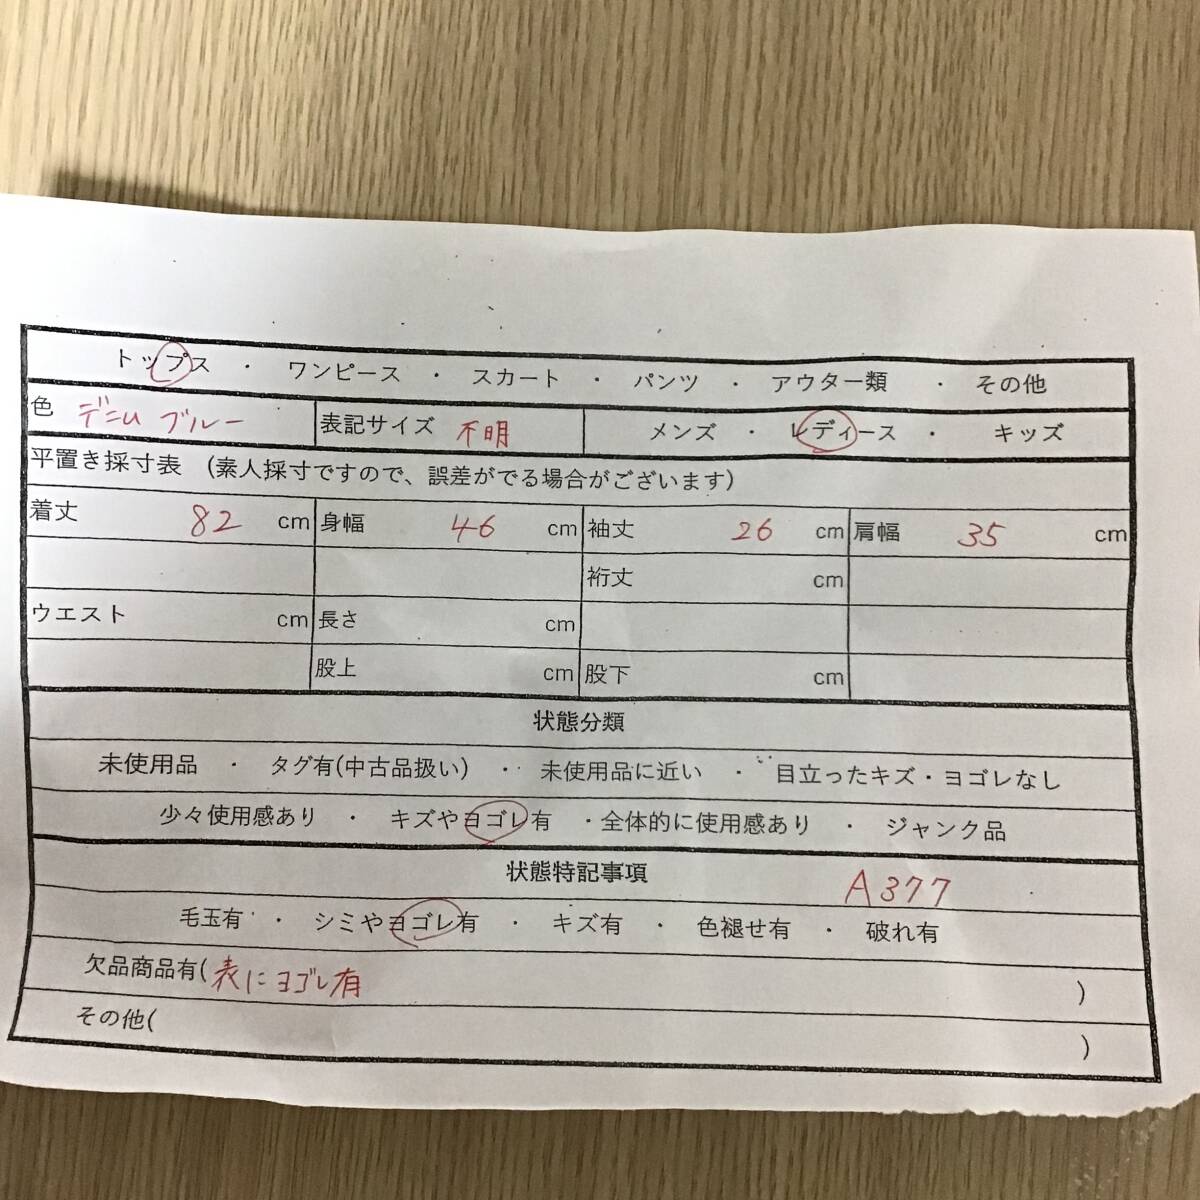 トップス ・ ワンピース ・ スカート ・ パンツ ・ アウター類 ・ その他
色 デニム ブルー 表記サイズ 不明 メンズ ・ レディース ・ キッズ
平置き採寸表 (素人採寸ですので、誤差がでる場合がございます)
着丈 82 cm 身幅 46 cm 袖丈 26 cm 肩幅 35 cm
裄丈 cm
ウエスト cm 長さ cm
股上 cm 股下 cm
状態分類
未使用品 ・ タグ有(中古品扱い) ・ 未使用品に近い ・ 目立ったキズ・ヨゴレなし
少々使用感あり ・ キズやヨゴレ有 ・全体的に使用感あり ・ ジャンク品
状態特記事項 A377
毛玉有 ・ シミやヨゴレ有 ・ キズ有 ・ 色褪せ有 ・ 破れ有
欠品商品有(表にヨゴレ有 )
その他( )